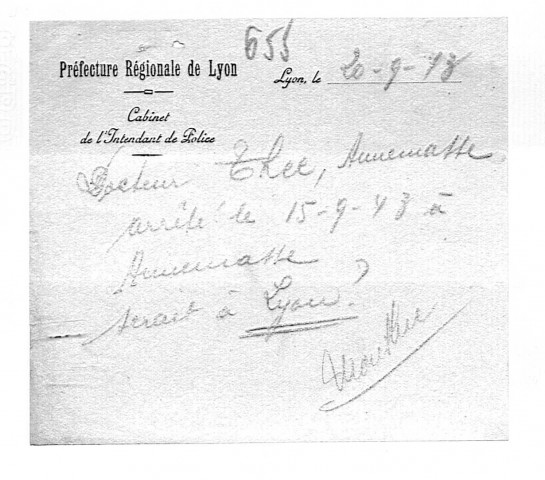 655
Préfecture Régionale de Lyon
Lyon, le 20-9-43
Cabinet
de l'Intendant de Police
Docteur Thee, Annemasse
arrêté le 15-9-43 à
Annemasse
serait à Lyon ?